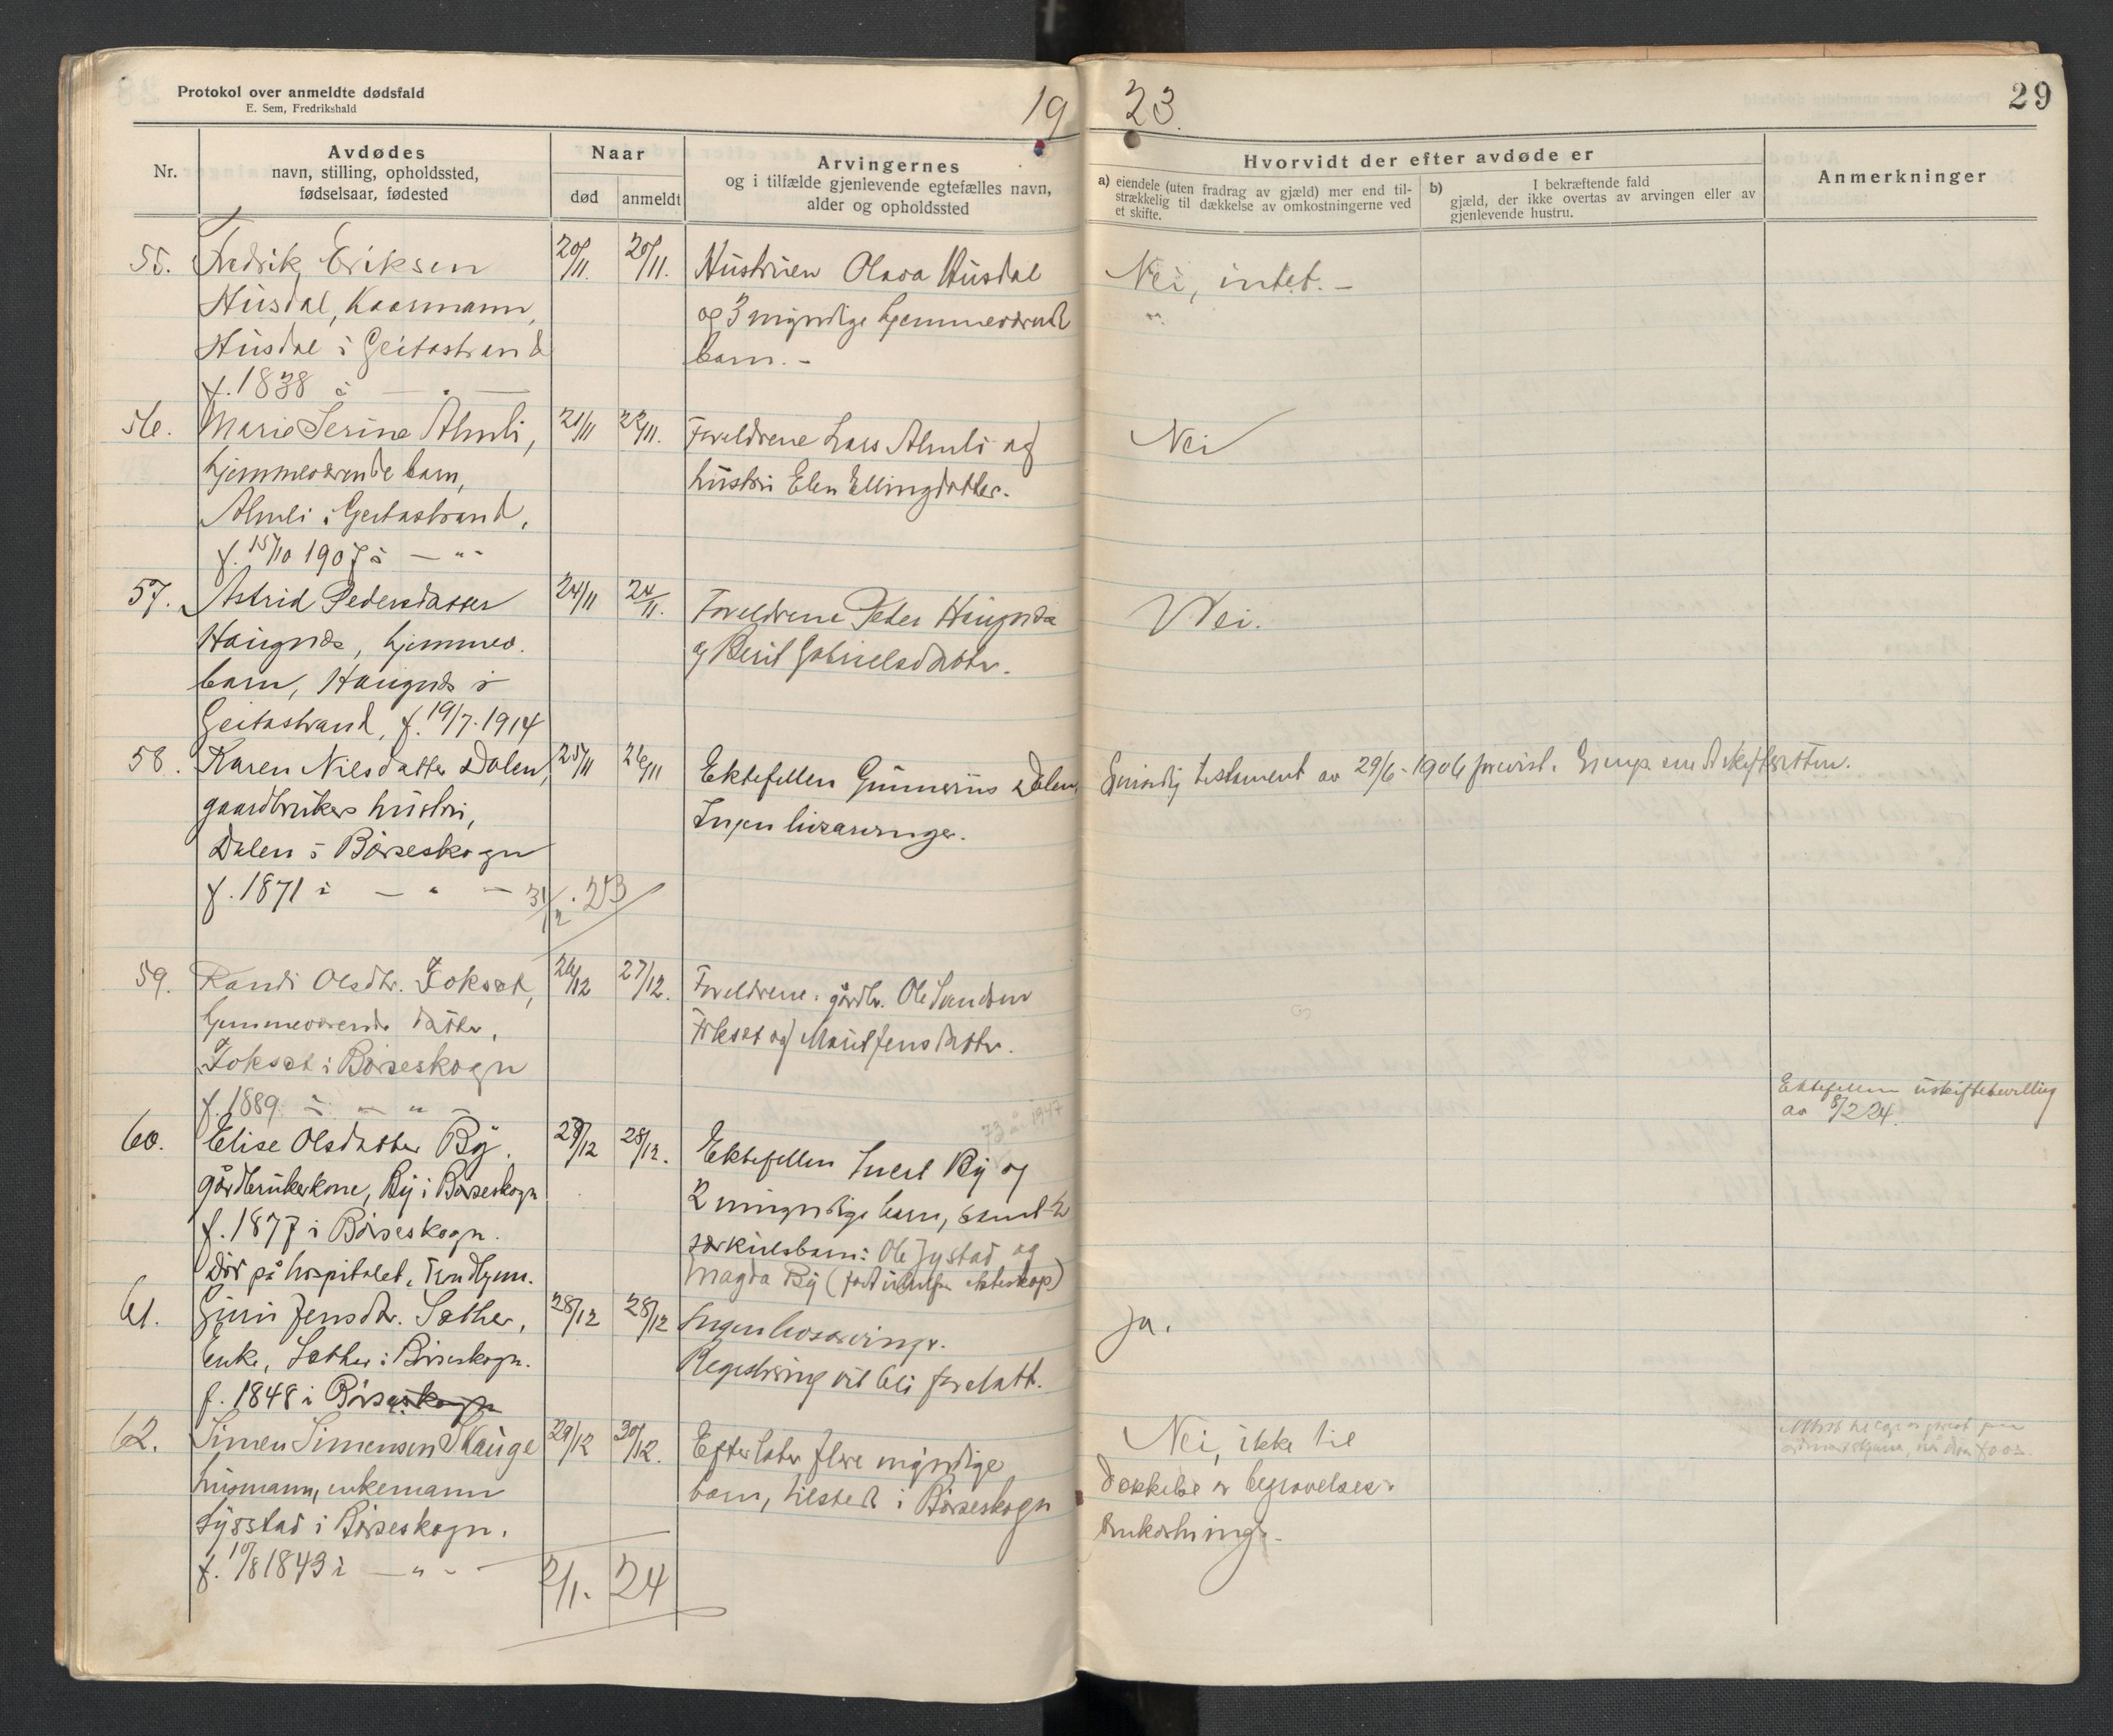 Protokol over anmeldte dødsfald
E. Sem, Fredrikshald
19 23.
29
Nr.
Avdødes
navn, stilling, opholdssted,
fødselsaar, fødested
Naar
død
anmeldt
Arvingernes
og i tilfælde gjenlevende egtefælles navn,
alder og opholdssted
Hvorvidt der efter avdøde er
a) eiendele (uten fradrag av gjæld) mer end til-
strækkelig til dækkelse av omkostningerne ved
et skifte.
b) I bekræftende fald
gjæld, der ikke overtas av arvingen eller av
gjenlevende hustru.
Anmerkninger
55. Fredrik Eriksen
Husdal, Kaarmann,
Husdal i Geitastrand
f. 1838 i — " —
20/11. 20/11.
Hustruen Olava Husdal
og 3 myndige hjemmeværende
barn. –
Nei, intet. –
56. Marie Serine Almli,
hjemmeværende barn,
Almli i Geitastrand,
f. 15/10 1907 i — " -
21/11 22/11.
Foreldrene Lars Almli og
hustru Elen Ellingdatter.
Nei
57. Astrid Pedersdatter
Haugnæs, hjemmev.
barn, Haugnæs i
Geitastrand, f. 19/7. 1914
24/11 24/11.
Foreldrene Peder Haugnæs
og Berit Gabrielsdatter.
Nei.
58. Karen Nilsdatter Dalen,
gaardbrukers hustru,
Dalen i Børseskogn
f. 1871 i — " —
25/11 26/11
Ektefellen Gunnerius Dalen,
Ingen livsarvinger.
Gjensidig testament av 29/6-1906 forevist.
31/12. 23
59. Randi Olsdtr. Foksæt,
hjemmeværende datter,
Foksæt i Børseskogn
f. 1889 i — " –
26/12 27/12.
Foreldrene, gårdbr. Ole
Foksæt og Marit Jensdatter.
60. Elise Olsdatter By.
gårdbrukerkone, By i Børseskogn
f. 1877 i Børseskogn.
Død på hospitalet, Trondhjem.
28/12.
73 år 1947
Ektefellen By og
2 myndige barn, samt 2
særkulsbarn: Ole Jystad og
Magda By (født utenfor ekteskap)
Ektefellen uskiftebevilling
av 8/2 24.
61. Guri Jensdtr. Sæther,
Enke, Sæther i Børseskogn.
f. 1848 i Børseskogn
28/12 28/12
Ingen livsarvinger.
Registrering vil bli foretatt.
Ja.
62. Simen Simensen Skauge
husmann, enkemann
Lysstad i Børseskogn.
f. 10/8 1843 i — " –
29/12 30/12.
Efterlater flere myndige
barn, tilsted i Børseskogn
Nei, ikke til
dækkelse av begravelses-
omkostninger.
2/1. 24